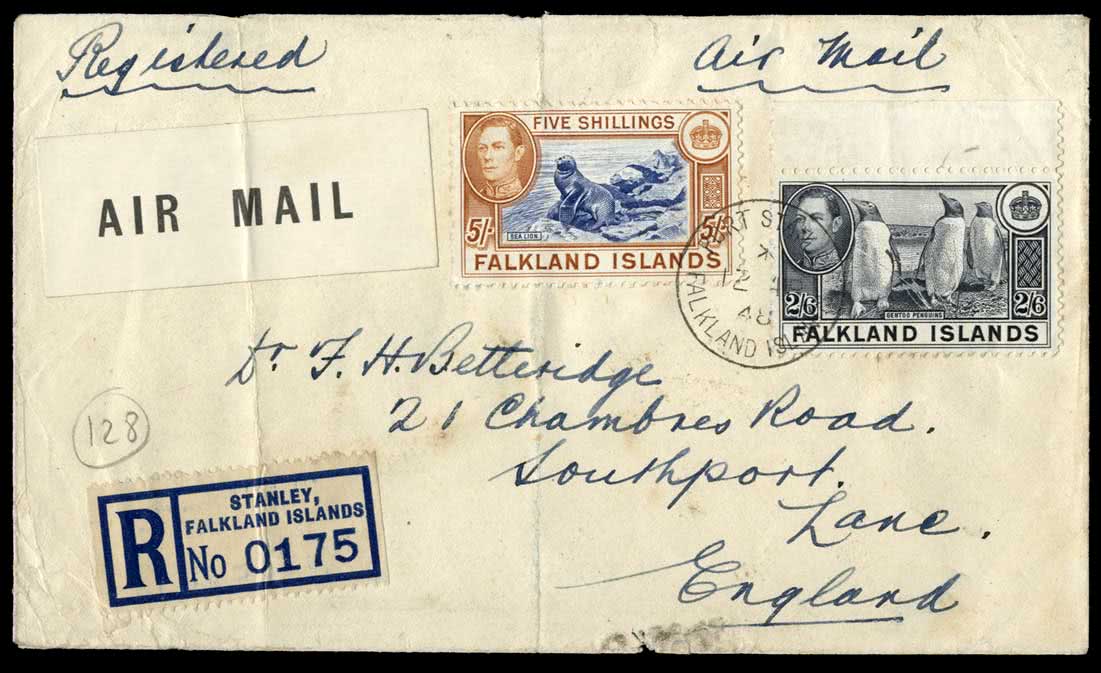 Registered
Air Mail
AIR MAIL
FIVE SHILLINGS
SEA LION
5/- 5/-
FALKLAND ISLANDS
GENTOO PENGUINS
2/6 2/6
FALKLAND ISLANDS
PORT ST
12
48
FALKLAND ISL
Dr F. H. Betteridge
21 Chambres Road.
Southport.
Lanc.
England
128
R
STANLEY,
FALKLAND ISLANDS
No 0175